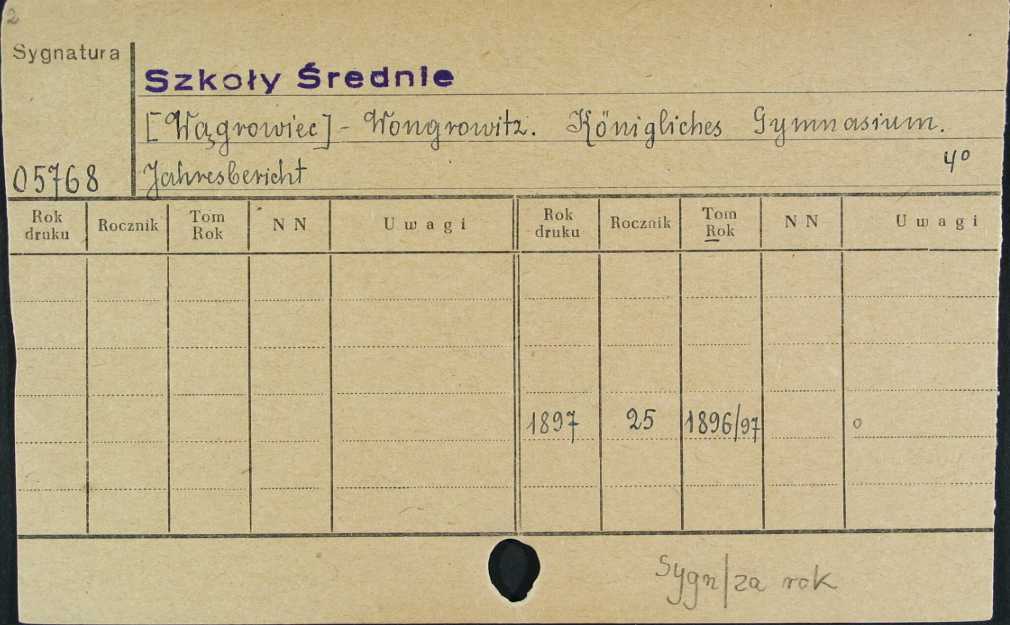 2
Sygnatura
Szkoły Średnie
[Wągrowiec] - Wongrowitz. Königliches Gymnasium.
4°
05768 Jahresbericht
Rok druku Rocznik Tom Rok N N Uwagi Rok druku Rocznik Tom Rok N N Uwagi
1897 25 1896/97 o
Sygn/za rok